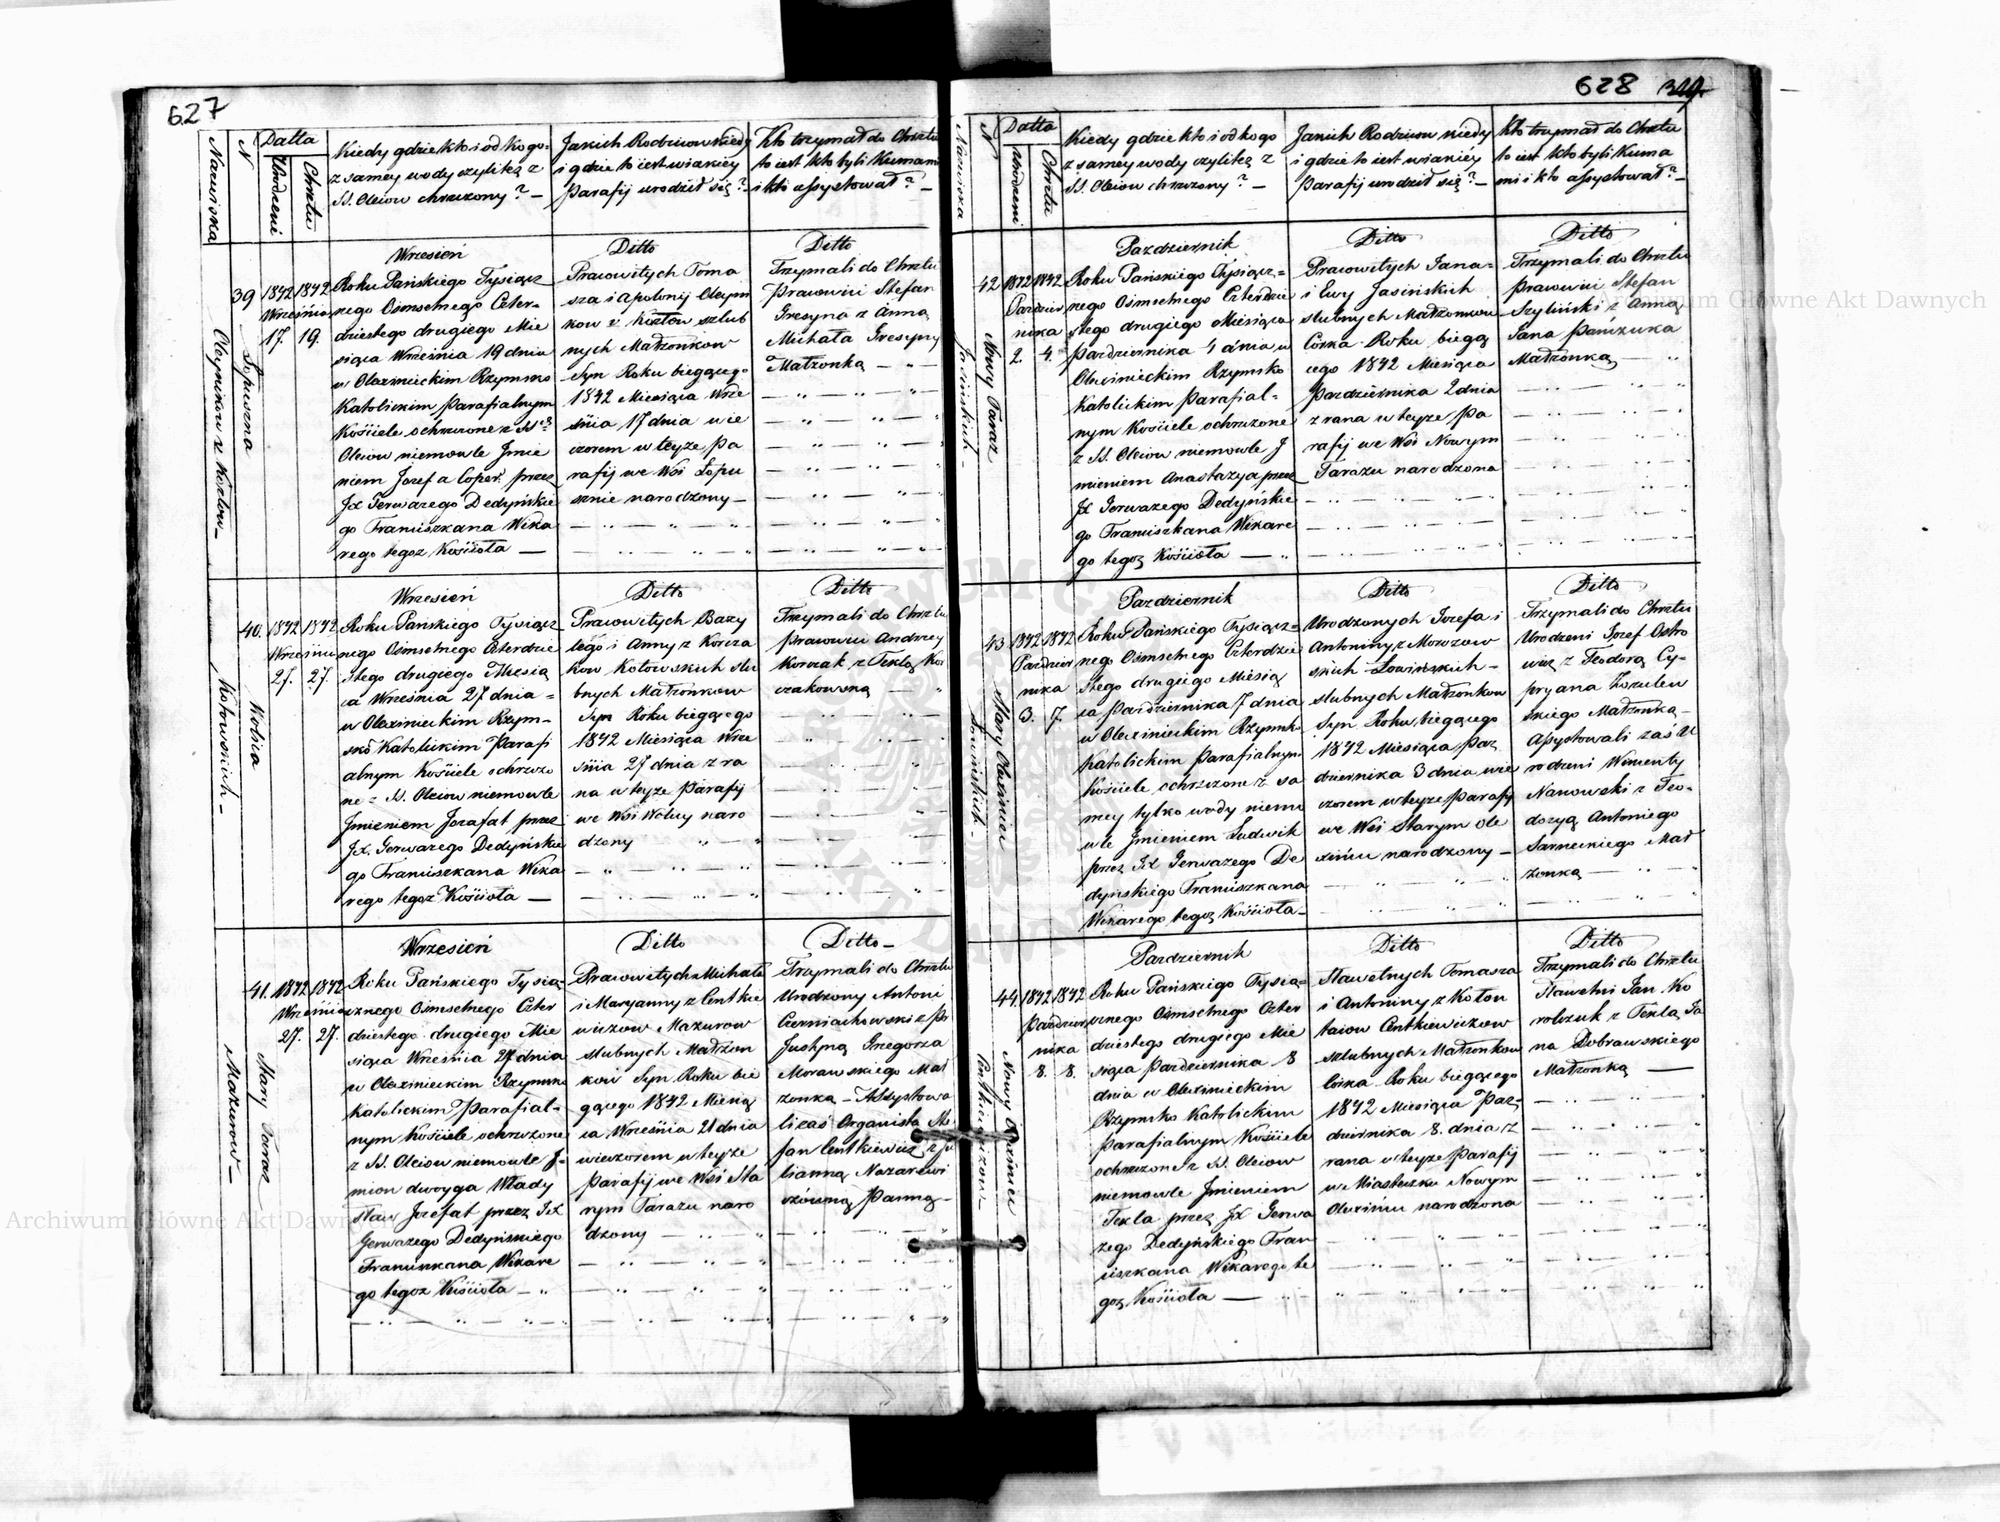 627
Nazwiska
N
Datta
Urodzeni
Chrztu
Kiedy gdzie kto i od kogo
z samey wody czyli też z
SS. Oleiow chrzczony? —
Jakich Rodzicow kiedy
i gdzie to iest w iakiey
Parafij urodził się? —
Kto trzymał do Chrztu
to iest kto byli Kumami
i kto assystował? —
39
1842 1842
Września
17. 19.
Łopuszna
Wrzesień
Roku Pańskiego Tysiącz
nego Ośmsetnego Czter-
dziestego drugiego Mie
siąca Września 19 dnia
w Olexinieckim Rzymsko
Katolickim Parafialnym
Kościele ochrzczone z SS
Oleiow niemowle Jmie
niem Jozef a Coper. przez
JX Gerwazego Dedyńskie
go Franciszkana Wika
rego tegoż Kościoła —
Ditto
Pracowitych Toma
sza i Apolonij Oleyni
kow z Kozłow szlub
nych Małżonkow
Syn Roku biegącego
1842 Miesiąca Wrze
śnia 17 dnia wie
czorem w teyże Pa
rafij we Wsi Łopu
sznie narodzony —
Ditto
Trzymali do Chrztu
Pracowici Stefan
Gresyna z Anną
Michała Gresyny
Małżonką —
40.
1842 1842
Września
27. 27.
Wolica
Kotowskich —
Wrzesień
Roku Pańskiego Tysiącz
nego Ośmsetnego Czterdzie
stego drugiego Miesią
ca Września 27 dnia =
w Olexinieckim Rzym-
sko Katolickim Parafi
alnym Kościele ochrzczo
ne z SS. Oleiow niemowle
Jmieniem Jozafat przez
JX. Gerwazego Dedyńskie
go Franciszkana Wika
rego tegoż Kościoła —
Ditto
Pracowitych Bazy
lego i Anny z Korcza
kow Kotowskich slu
bnych Małżonkow
Syn Roku biegącego
1842 Miesiąca Wrze
śnia 27 dnia z ra
na w teyże Parafij
we Wsi Wolicy naro
dzony
Ditto
Trzymali do Chrztu
Pracowici Andrzey
Korczak z Teklą Kor
czakowną —
41.
1842 1842
Września
27. 27.
Stary Taraz
Mazurow —
Wrzesień
Roku Pańskiego Tysią-
cznego Ośmsetnego Czter
dziestego drugiego Mie
siąca Września 27 dnia
w Olexinieckim Rzymsko
Katolickim Parafial-
nym Kościele ochrzczone
z SS. Oleiow niemowle J-
mion dwoyga Włady
sław Jozefat przez JX
Gerwazego Dedyńskiego
Franciszkana Wikare
go tegoż Kościoła —
Ditto
Pracowitych Michała
i Maryanny z Centkie
wiczow Mazurow
slubnych Małżon
kow Syn Roku bie
gącego 1842 Miesią
ca Września 21 dnia
wieczorem w teyże
Parafij we Wsi Sta
rym Tarazu naro
dzony —
Ditto —
Trzymali do Chrztu
Urodzony Antoni
Czerniachowski z
Justyną Grzegorza
Morawskiego Mał
żonką — Assystowa
li zaś Organista Ste
fan Centkiewicz z Ju
lianną Nazarewi
czówną Panną —
628
Nazwiska
N
Datta
Urodzeni
Chrztu
Kiedy gdzie kto i od kogo
z samey wody czyli też z
SS. Oleiow chrzczony? —
Jakich Rodzicow kiedy
i gdzie to iest w iakiey
Parafij urodził się? —
Kto trzymał do Chrztu
to iest kto byli Kuma
mi i kto assystował? —
42
1842 1842
Paździer
nika
2. 4.
Nowy Taraz
Jasińskich —
Pazdziernik
Roku Pańskiego Tysiącz=
nego Ośmsetnego Czterdzie
stego drugiego Miesiąca
Pazdziernika 4 dnia w
Olexinieckim Rzymsko
Katolickim Parafial=
nym Kościele ochrzczone
z SS. Oleiow niemowle J
mieniem Anastazya przez
JX Gerwazego Dedyńskie
go Franciszkana Wikare
go tegoż Kościoła —
Ditto
Pracowitych Jana=
i Ewy Jasińskich
slubnych Małżonkow
Corka Roku biegą
cego 1842 Miesiąca
Pazdziernika 2 dnia
z rana w teyże Pa
rafij we Wsi Nowym
Tarazu narodzona
Ditto
Trzymali do Chrztu
Pracowici Stefan
Szyliński z Anną
Jana Panczuka
Małżonką —
43
1842 1842
Pazdzier
nika
3. 7.
Stary Olexiniec
Łowińskich —
Pazdziernik
Roku Pańskiego Tysiącz=
nego Ośmsetnego Czterdzie
stego drugiego Miesią
ca Pazdziernika 7 dnia
w Olexinieckim Rzymsko
Katolickim Parafialnym
Kościele ochrzczone z sa
mey tylko wody niemo
wle Jmieniem Ludwik
przez JX Gerwazego De
dyńskiego Franciszkana
Wikarego tegoż Kościoła —
Ditto
Urodzonych Jozefa i
Antoniny z Morozow
skich Łowińskich —
slubnych Małżonkow
Syn Roku biegącego
1842 Miesiąca Paz
dziernika 3 dnia wie
czorem w teyże Parafij
we Wsi Starym Ole
xińcu narodzony —
Ditto
Trzymali do Chrztu
Urodzeni Jozef Ostro
wicz z Teodorą Cy-
pryana Kozulew
skiego Małżonką —
Assystowali zaś U
rodzeni Wincenty
Nanowski z Teo-
dozyą Antoniego
Sarneckiego Mał
żonką —
44.
1842 1842
Pazdzier
nika
8. 8.
Nowy Olexiniec
Centkiewiczow —
Pazdziernik
Roku Pańskiego Tysią=
cznego Ośmsetnego Czter
dziestego drugiego Mie
siąca Pazdziernika 8
dnia w Olexinieckim
Rzymsko Katolickim
Parafialnym Kościele
ochrzczone z SS. Oleiow
niemowle Jmieniem
Tekla przez JX Gerwa
zego Dedyńskiego Fran
ciszkana Wikarego te
goż Kościoła —
Ditto
Sławetnych Tomasza
i Antoniny z Kołon
taiow Centkiewiczow
szlubnych Małżonkow
Corka Roku biegącego
1842 Miesiąca Paz
dziernika 8. dnia z
rana w teyże Parafij
w Miasteczku Nowym
Olexińcu narodzona
Ditto
Trzymali do Chrztu
Sławetni Jan Ko
rolczuk z Teklą Ja
na Dobrawskiego
Małżonką —
Archiwum Główne Akt Dawnych
Archiwum Główne Akt Dawnych